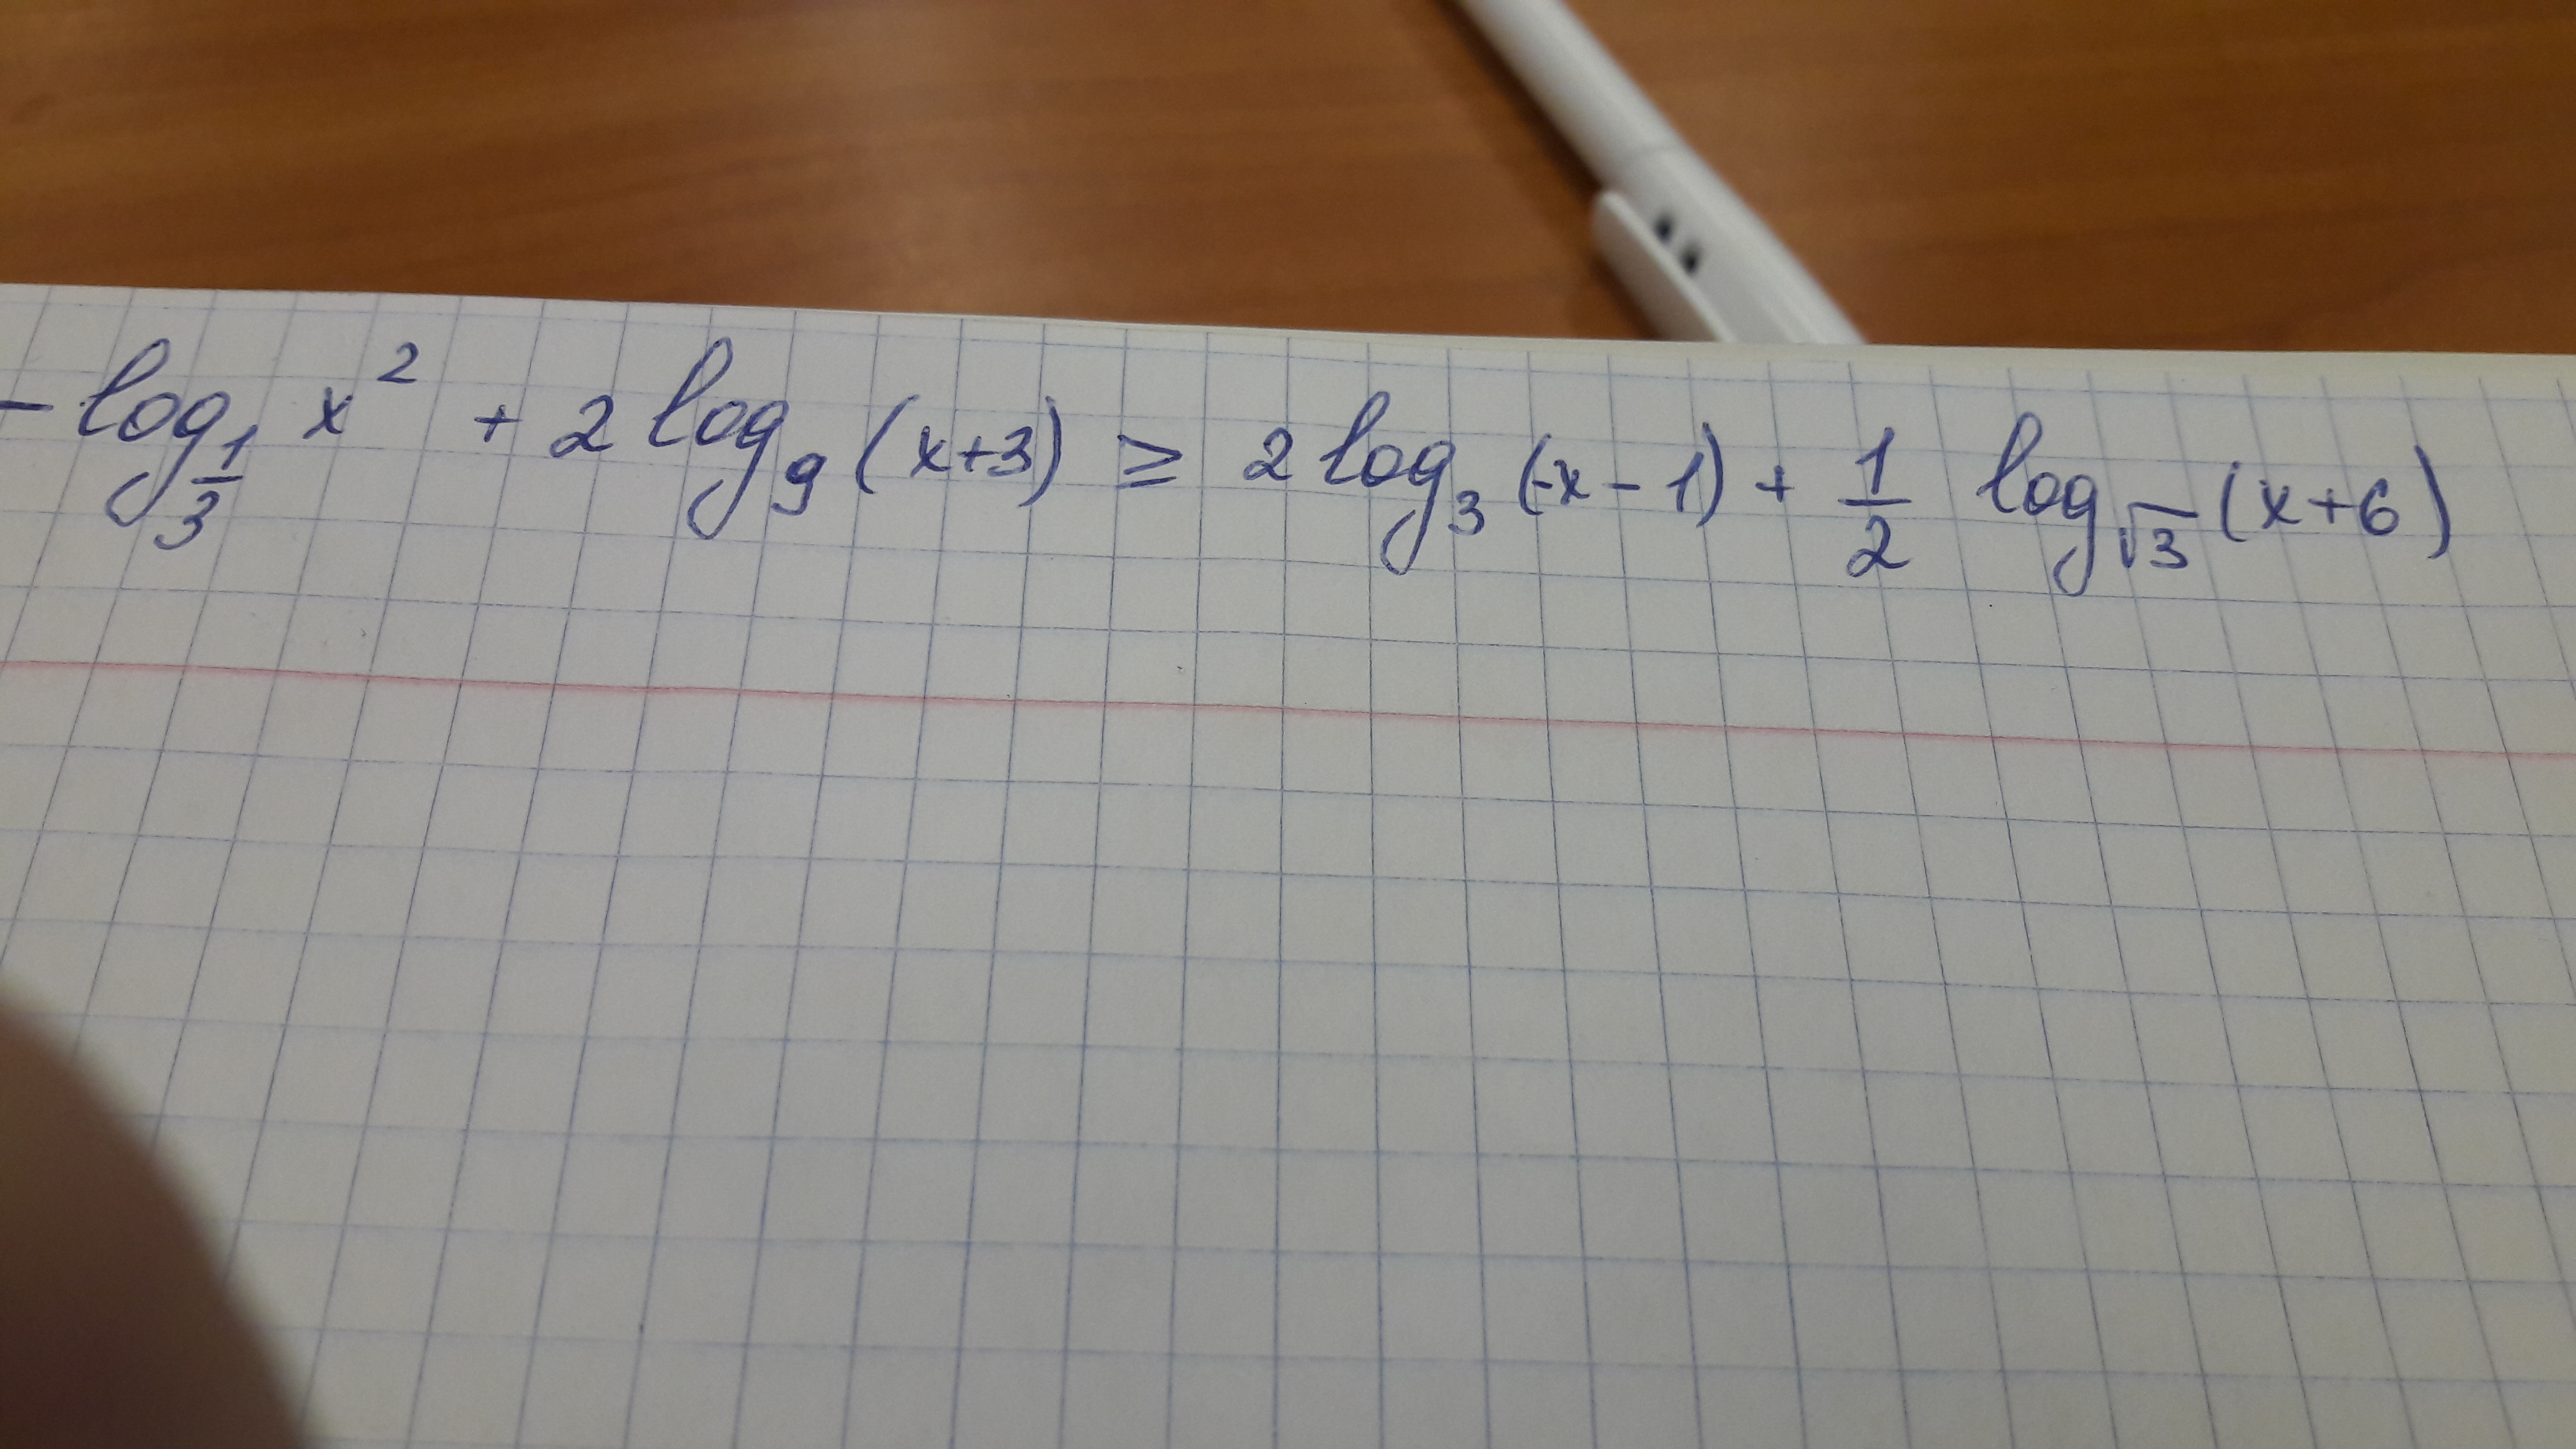 - log_{1/3} x² + 2 log_9 (x+3) ≥ 2 log_3 (-x - 1) + 1/2 log_{√3} (x+6)